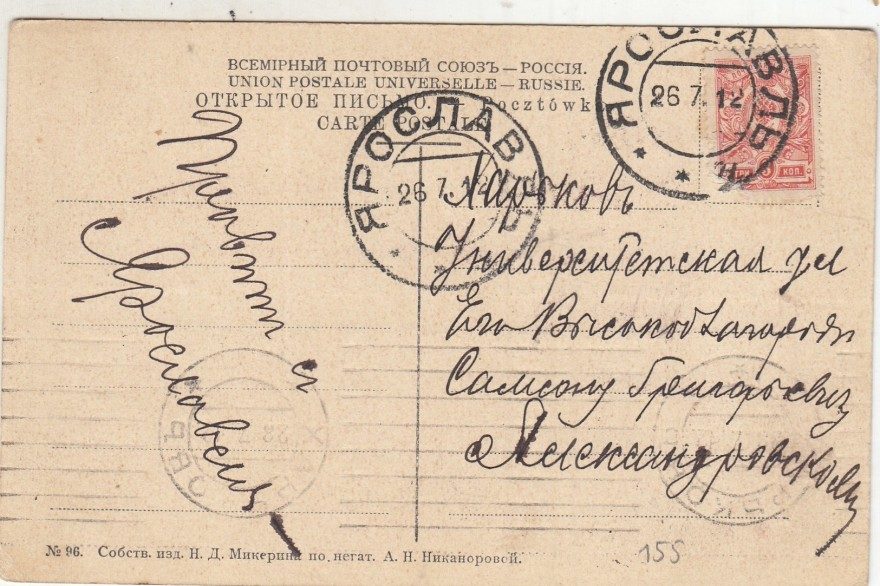 ВСЕМІРНЫЙ ПОЧТОВЫЙ СОЮЗЪ—РОССІЯ.
UNION POSTALE UNIVERSELLE—RUSSIE.
ОТКРЫТОЕ ПИСЬМО. Pocztówk
CARTE POSTALE
ЯРОСЛАВЛЬ
26 7. 12
ЯРОСЛАВЛЬ
26 7. 12
КОП.
Привѣт из
Ярославля
Харьковъ
Университетская ул
Его Высокоблагородію
Самсону Григорьевичу
Александровскому
№ 96. Собств. изд. Н. Д. Микерина по негат. А. Н. Никаноровой.
155